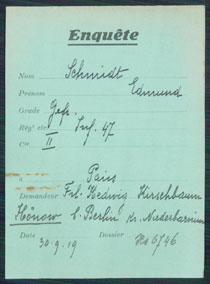 Enquête
Nom Schmidt
Prénom Edmund
Grade Gefr.
Régt etc Inf. 47
Cie II
à Paris
Demandeur Frl. Hedwig Kirschbaum
Hönow b. Berlin Kr. Niederbarnim
Date 30.9.19 Dossier 6746